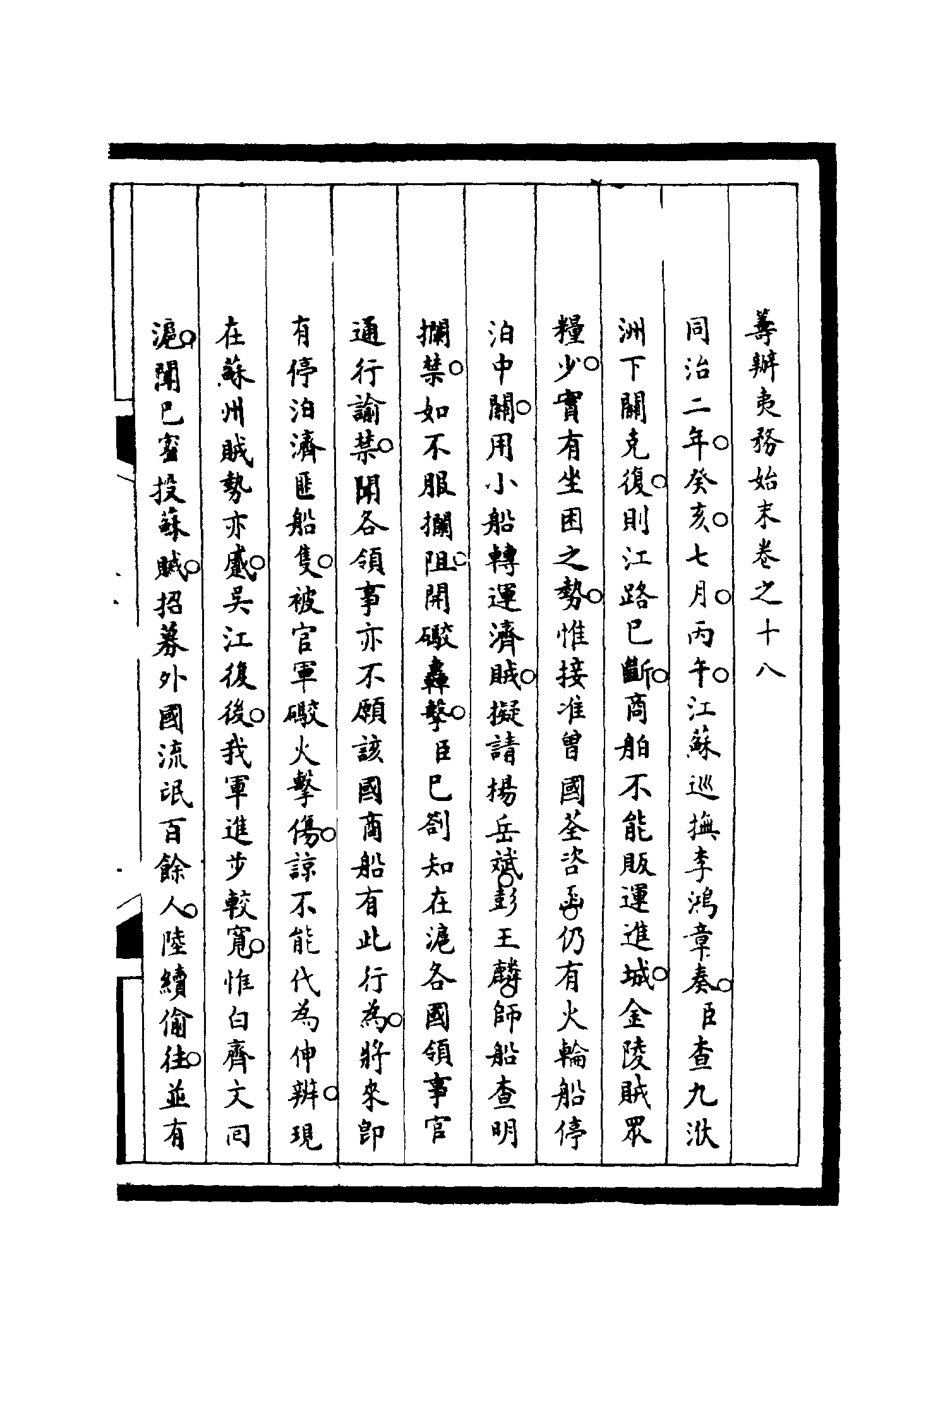 籌辦夷務始末卷之十八
同治二年。癸亥。七月。丙午。江蘇巡撫李鴻章奏。臣查九洑
洲下關克復。則江路已斷。商舶不能販運進城。金陵賊眾
糧少。實有坐困之勢。惟接准曾國荃咨函。仍有火輪船停
泊中關。用小船轉運濟賊。擬請揚岳斌。彭玉麟。師船查明
攔禁。如不服攔阻。開礮轟擊。臣已劄知在滬各國領事官
通行諭禁。聞各領事亦不願該國商船有此行為。將來即
有停泊濟匪船隻。被官軍礮火擊傷。諒不能代為伸辨。現
在蘇州賊勢亦蹙。吳江復後。我軍進步較寬。惟白齊文回
滬。聞已密投蘇賊。招募外國流氓百餘人。陸續偷往。並有